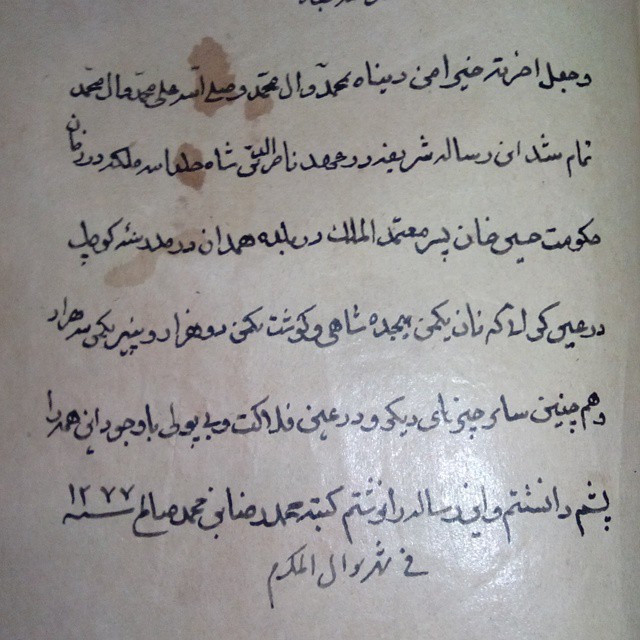 وجعل اخرته خیرا من دنیاه بمحمد و ال محمد وصلی الله علی محمد وال محمد
تمام شد این رساله شریفه در عهد ناصرالدین شاه خلدالله ملکه و در زمان
حکومت خان پسر معتمد الملک در بلده همدان در مدرسه کوچک
در عین کی لا که نان یکمن هیجده شاهی و کوشت یکمن دو هزار و پنیر یکمن سه هزار
وهم چنین سایر چیزهای دیکر و در عین فلاکت و بی پولی باوجود این همه را
پشم دانستم و این رساله را نوشتم کتبه محمد رضا بن محمد صالح سنه ۱۲۷۷
فی شهر شوال المکرم